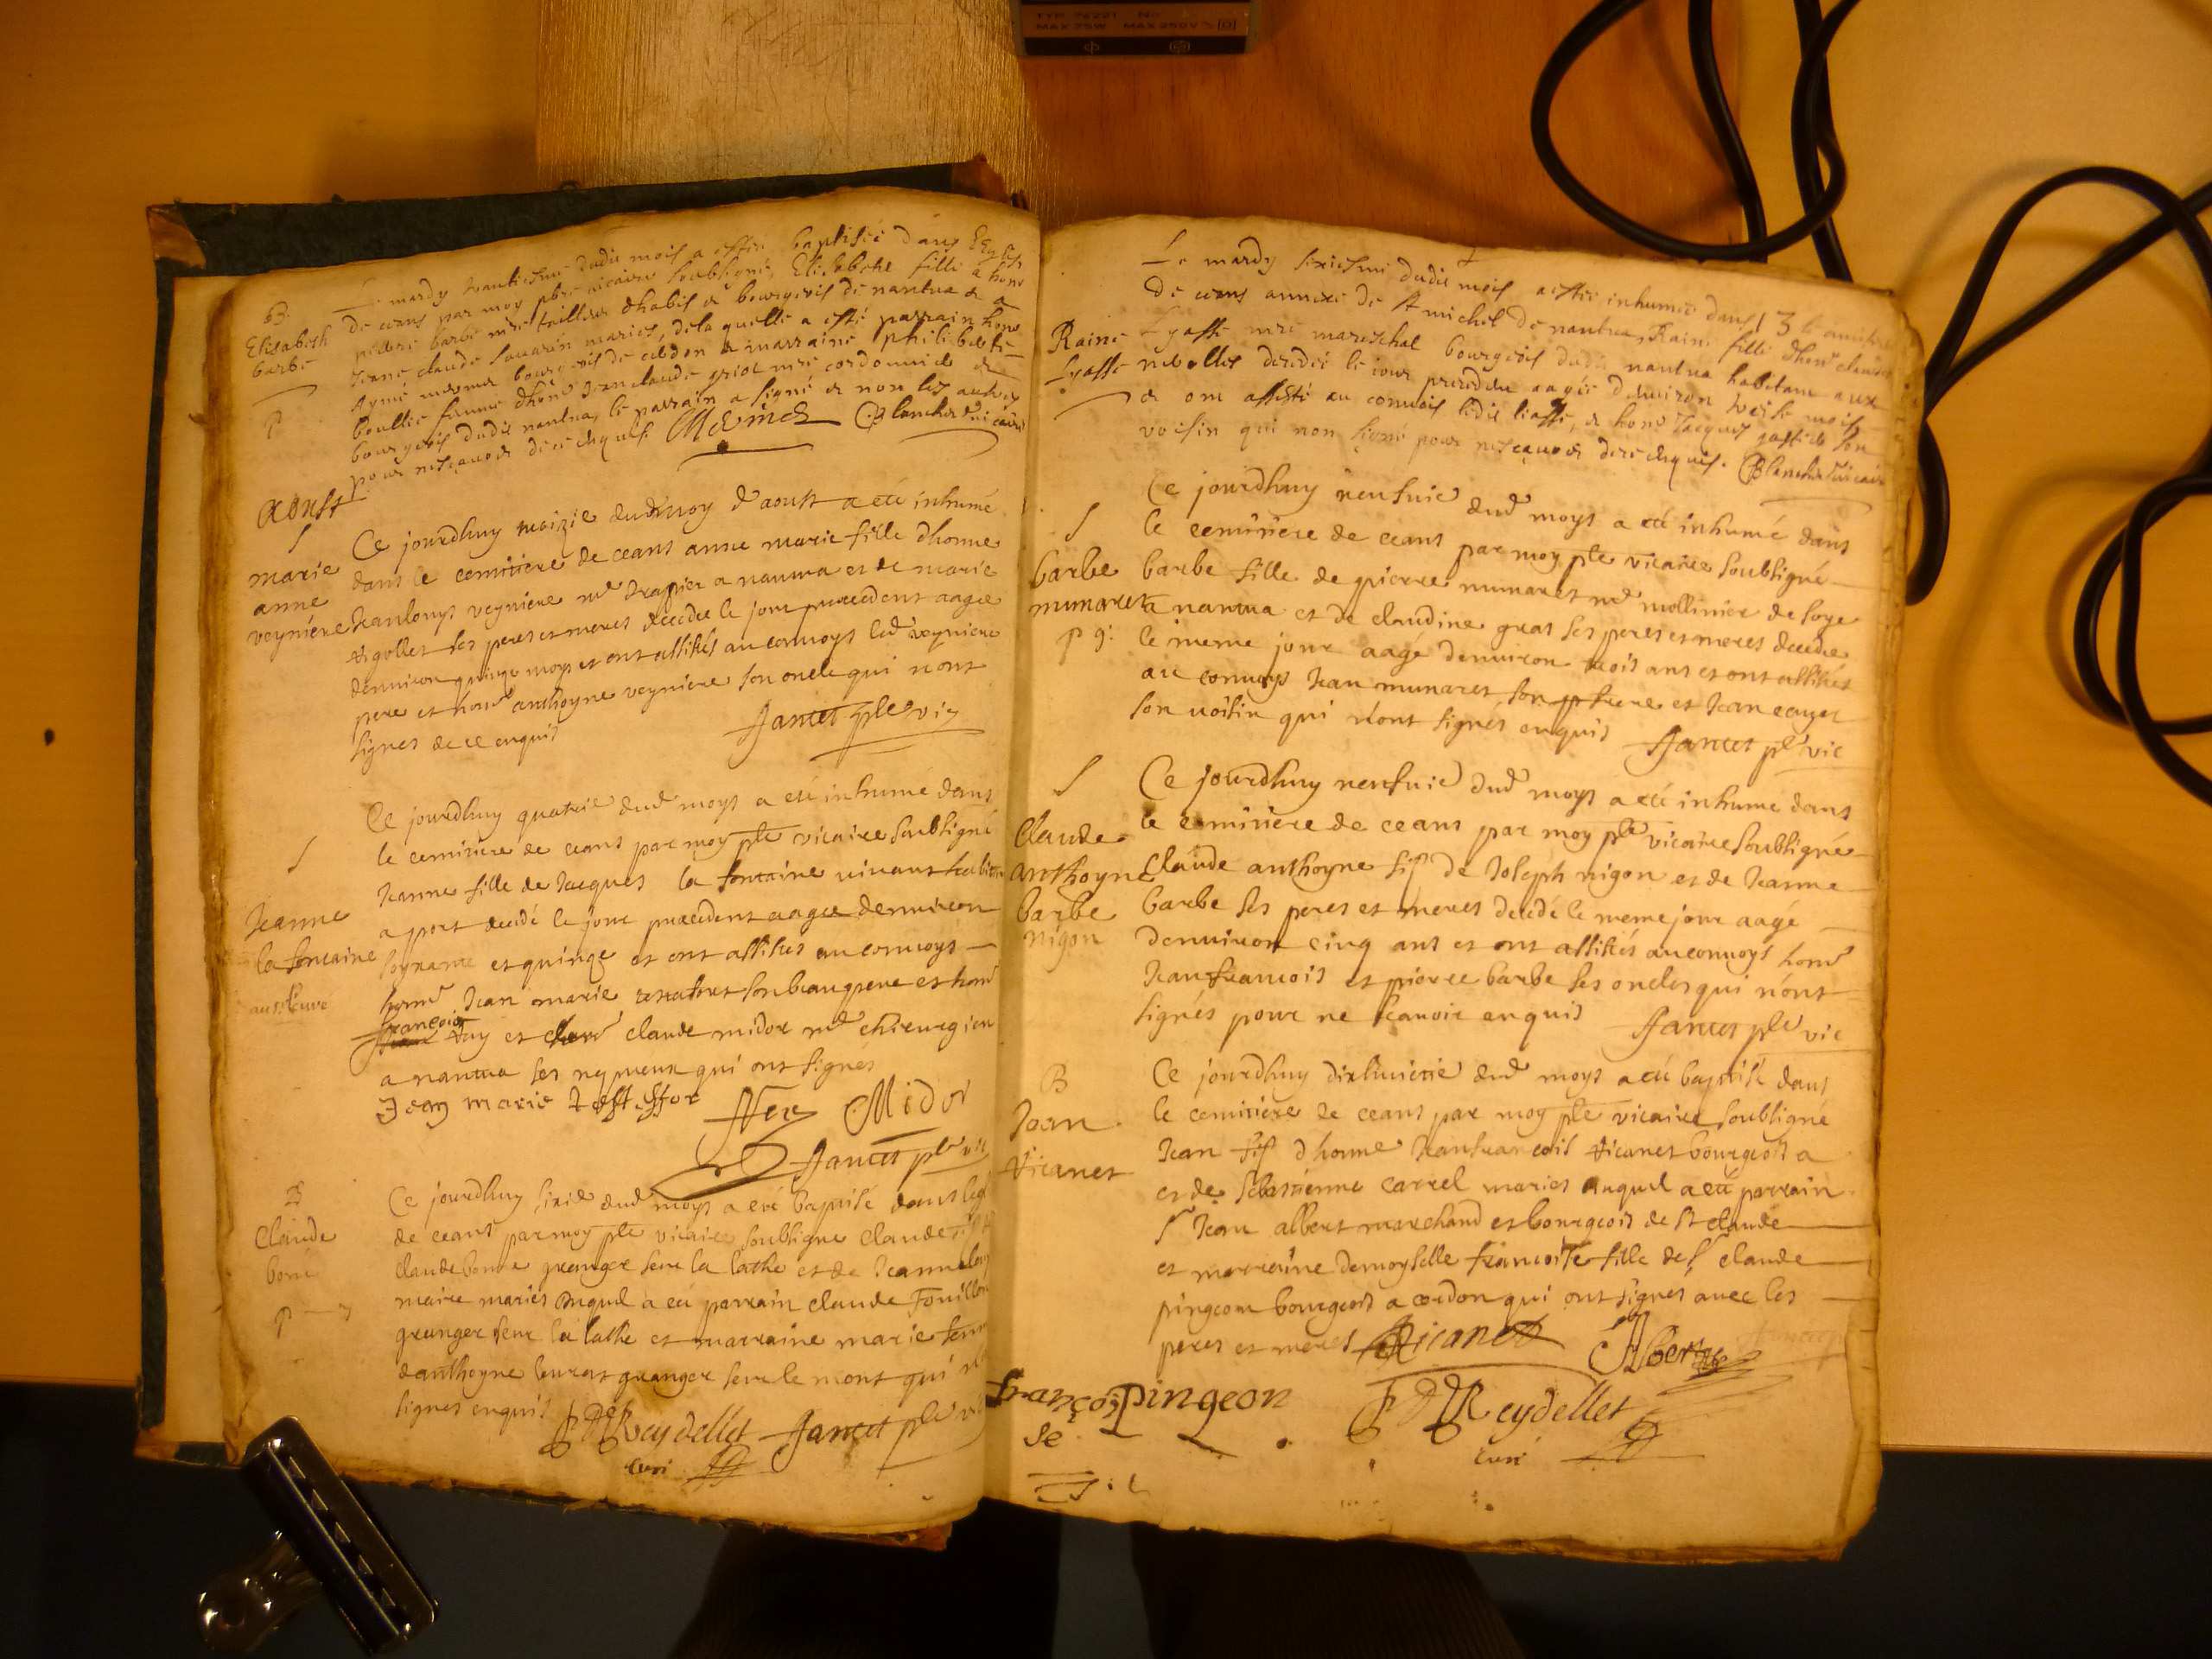 TYP 74221 No
MAX 75W MAX 250V
B.
Elisabeth
barbe
Le mardy trantiesme dudit mois a estée baptisée dans L'Eglise
de ceans par moy pbre vicaire soubsigné, Elisabeth fille a hon
pierre barbe mre tailleur dhabis et bourgeois de nantua et a
Jeanne claude sauarin mariés, de la quelle a esté parrain hon
Aymé mermet bourgeois de cerdon et marraine philiberte
boullié femme dhon Jean claude griot mre cordonnier et
bourgeois dudit nantua, le parrain a signé et non les autres
pour ne scauoir de ce enquis. Blanchet vicaire
Aoust
S
marie
anne
veyniere
Ce jourdhuy troizie dud moy d'aoust a eté inhumé
dans le cemitiere de ceans anne marie fille dhonne
Jean louys veyniere md drapier a nantua et de marie
ses peres et meres decedee le jour precedent aagee
denuiron quinze moys et ont assistés au conuoys led veyniere
pere et hono anthoyne veyniere son oncle qui n'ont
signes de ce enquis Jantet pbre vic
S
Jeanne
la fontaine
Ce jourdhuy quatrie dud moys a eté inhumé dans
le cemitiere de ceans par moy pbre vicaire soubsigné
Jeanne fille de Jacques la fontaine viuant habitan
a port decedé le jour precedent aagee denuiron
soyxante et quinze et ont assistés au conuoys
hono Jean marie son beau frere et hono
francois
et claude midor md chirurgien
a nantua ses nepueux qui ont signés
Jean marie Midor
Jantet pbre vic
B
Claude
bonne
Ce jourdhuy sixie dud moys a eté baptisé dans legl
de ceans par moy pbre vicaire soubsigné claude fils de
claude bonne granger seur la lathe et de Jeanne
maire mariés auquel a eté parrain claude fouilloux
granger seur la lathe et marraine marie femme
danthoyne granger seur le mont qui n'ont
signes enquis Reydellet Jantet pbre vic
curé
13
Raine
Lyasse
Le mardy sixiesme dudit mois a estée inhumée dans le cimitiere
de ceans annexe de St michel de nantua, Raine fille dhon claude
Lyasse mre mareschal bourgeois dudit nantua habitant aux
neolles decedée le iour precedan aagée denuiron treize mois
et ont assisté au conuois ledit liasse, et hon Jacques son
voisin qui non signé pour ne scauoir de ce enquis. Blanchet vicaire
S
barbe
munaret
Ce jourdhuy neufuie dud moys a eté inhumé dans
le cemitiere de ceans par moy pbre vicaire soubsigné
barbe fille de pierre munaret md mollinier de soye
a nantua et de claudine gras ses peres et meres decedee
le meme jour aagé denuiron trois ans et ont assistés
au conuoys Jean munaret son frere et Jean
son uoisin qui n'ont signés enquis Jantet pbre vic
S
Claude
anthoyne
barbe
nigon
Ce jourdhuy neufuie dud moys a eté inhumé dans
le cemitiere de ceans par moy pbre vicaire soubsigné
claude anthoyne fils de Joseph nigon et de Jeanne
barbe ses peres et meres decedé le meme jour aagé
denuiron cinq ans et ont assistés au conuoys hono
Jean francois et pierre barbe ses oncles qui n'ont
signés pour ne scauoir enquis Jantet pbre vic
B
Jean
vicanet
Ce jourdhuy dud moys a eté baptisé dans
le cemitiere de ceans par moy pbre vicaire soubsigné
Jean fils dhonne Jean francois vicanet bourgeois a
et de sebastienne carrel mariés auquel a eté parrain
Sr Jean albert marchand et bourgeois de St claude
et marraine demoyselle francoise fille de Sr claude
pingeon bourgeois a cerdon qui ont signés auec les
peres et meres Vicanet Albert
françoise pingeon Reydellet
curé